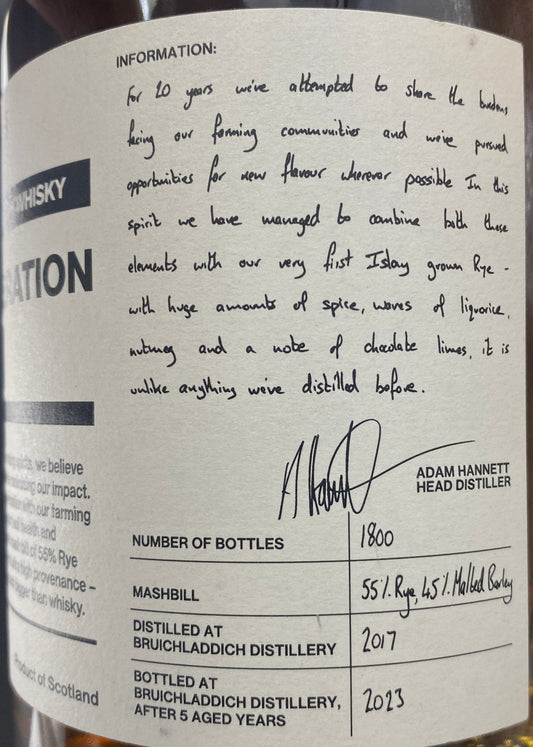 INFORMATION:
For 20 years we've attempted to share the burdens
facing our farming communities and we've pursued
opportunities for new flavour wherever possible In this
spirit we have managed to combine both these
elements with our very first Islay grown Rye -
with huge amounts of spice, waves of liquorice,
nutmeg and a note of chocolate limes, it is
unlike anything we've distilled before.
ADAM HANNETT
HEAD DISTILLER
NUMBER OF BOTTLES 1800
MASHBILL 55%. Rye, 45%. Malted Barley
DISTILLED AT
BRUICHLADDICH DISTILLERY 2017
BOTTLED AT
BRUICHLADDICH DISTILLERY,
AFTER 5 AGED YEARS 2023
WHISKY
RATION
we believe
our impact.
with our farming
health and
of 55% Rye
high provenance –
bigger than whisky.
Product of Scotland